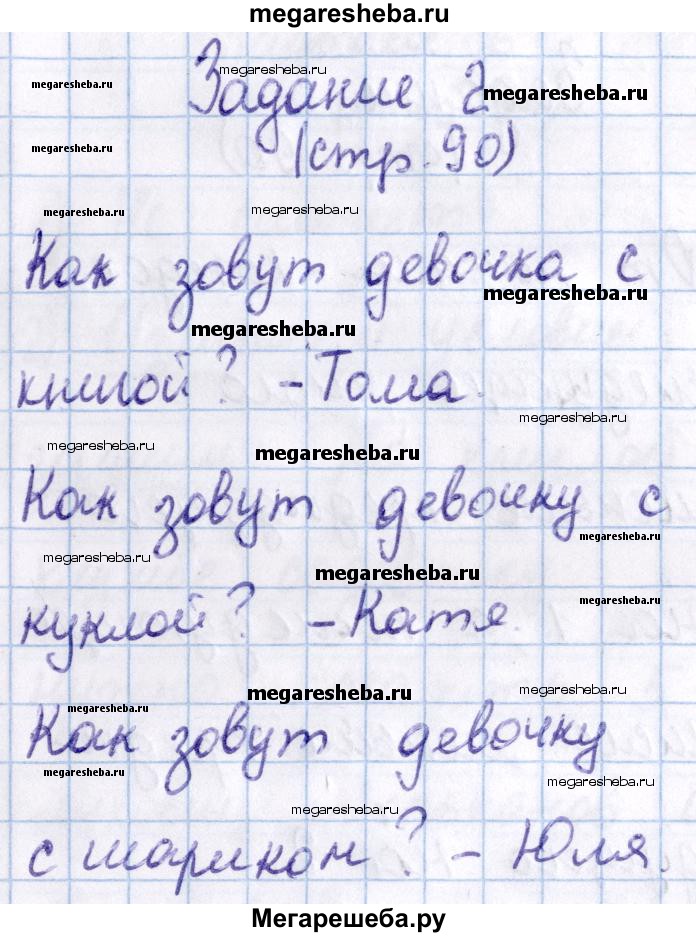 megaresheba.ru
megaresheba.ru
megaresheba.ru
Задание 2
megaresheba.ru
megaresheba.ru
(стр. 90)
megaresheba.ru
megaresheba.ru
Как зовут девочка с
megaresheba.ru
megaresheba.ru
книгой? - Тома.
megaresheba.ru
megaresheba.ru
megaresheba.ru
Как зовут девочку с
megaresheba.ru
megaresheba.ru
megaresheba.ru
megaresheba.ru
куклой? - Катя.
megaresheba.ru
megaresheba.ru
megaresheba.ru
Как зовут девочку
megaresheba.ru
megaresheba.ru
megaresheba.ru
с шариком? - Юля.
Мегарешеба.ру